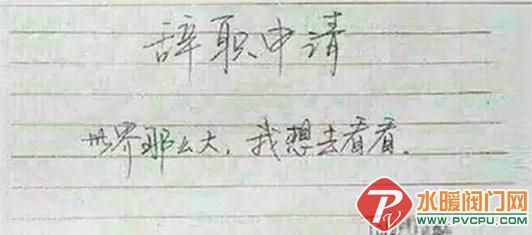 辞职申请
世界那么大，我想去看看.
水暖阀门网
www.PVCPU.com